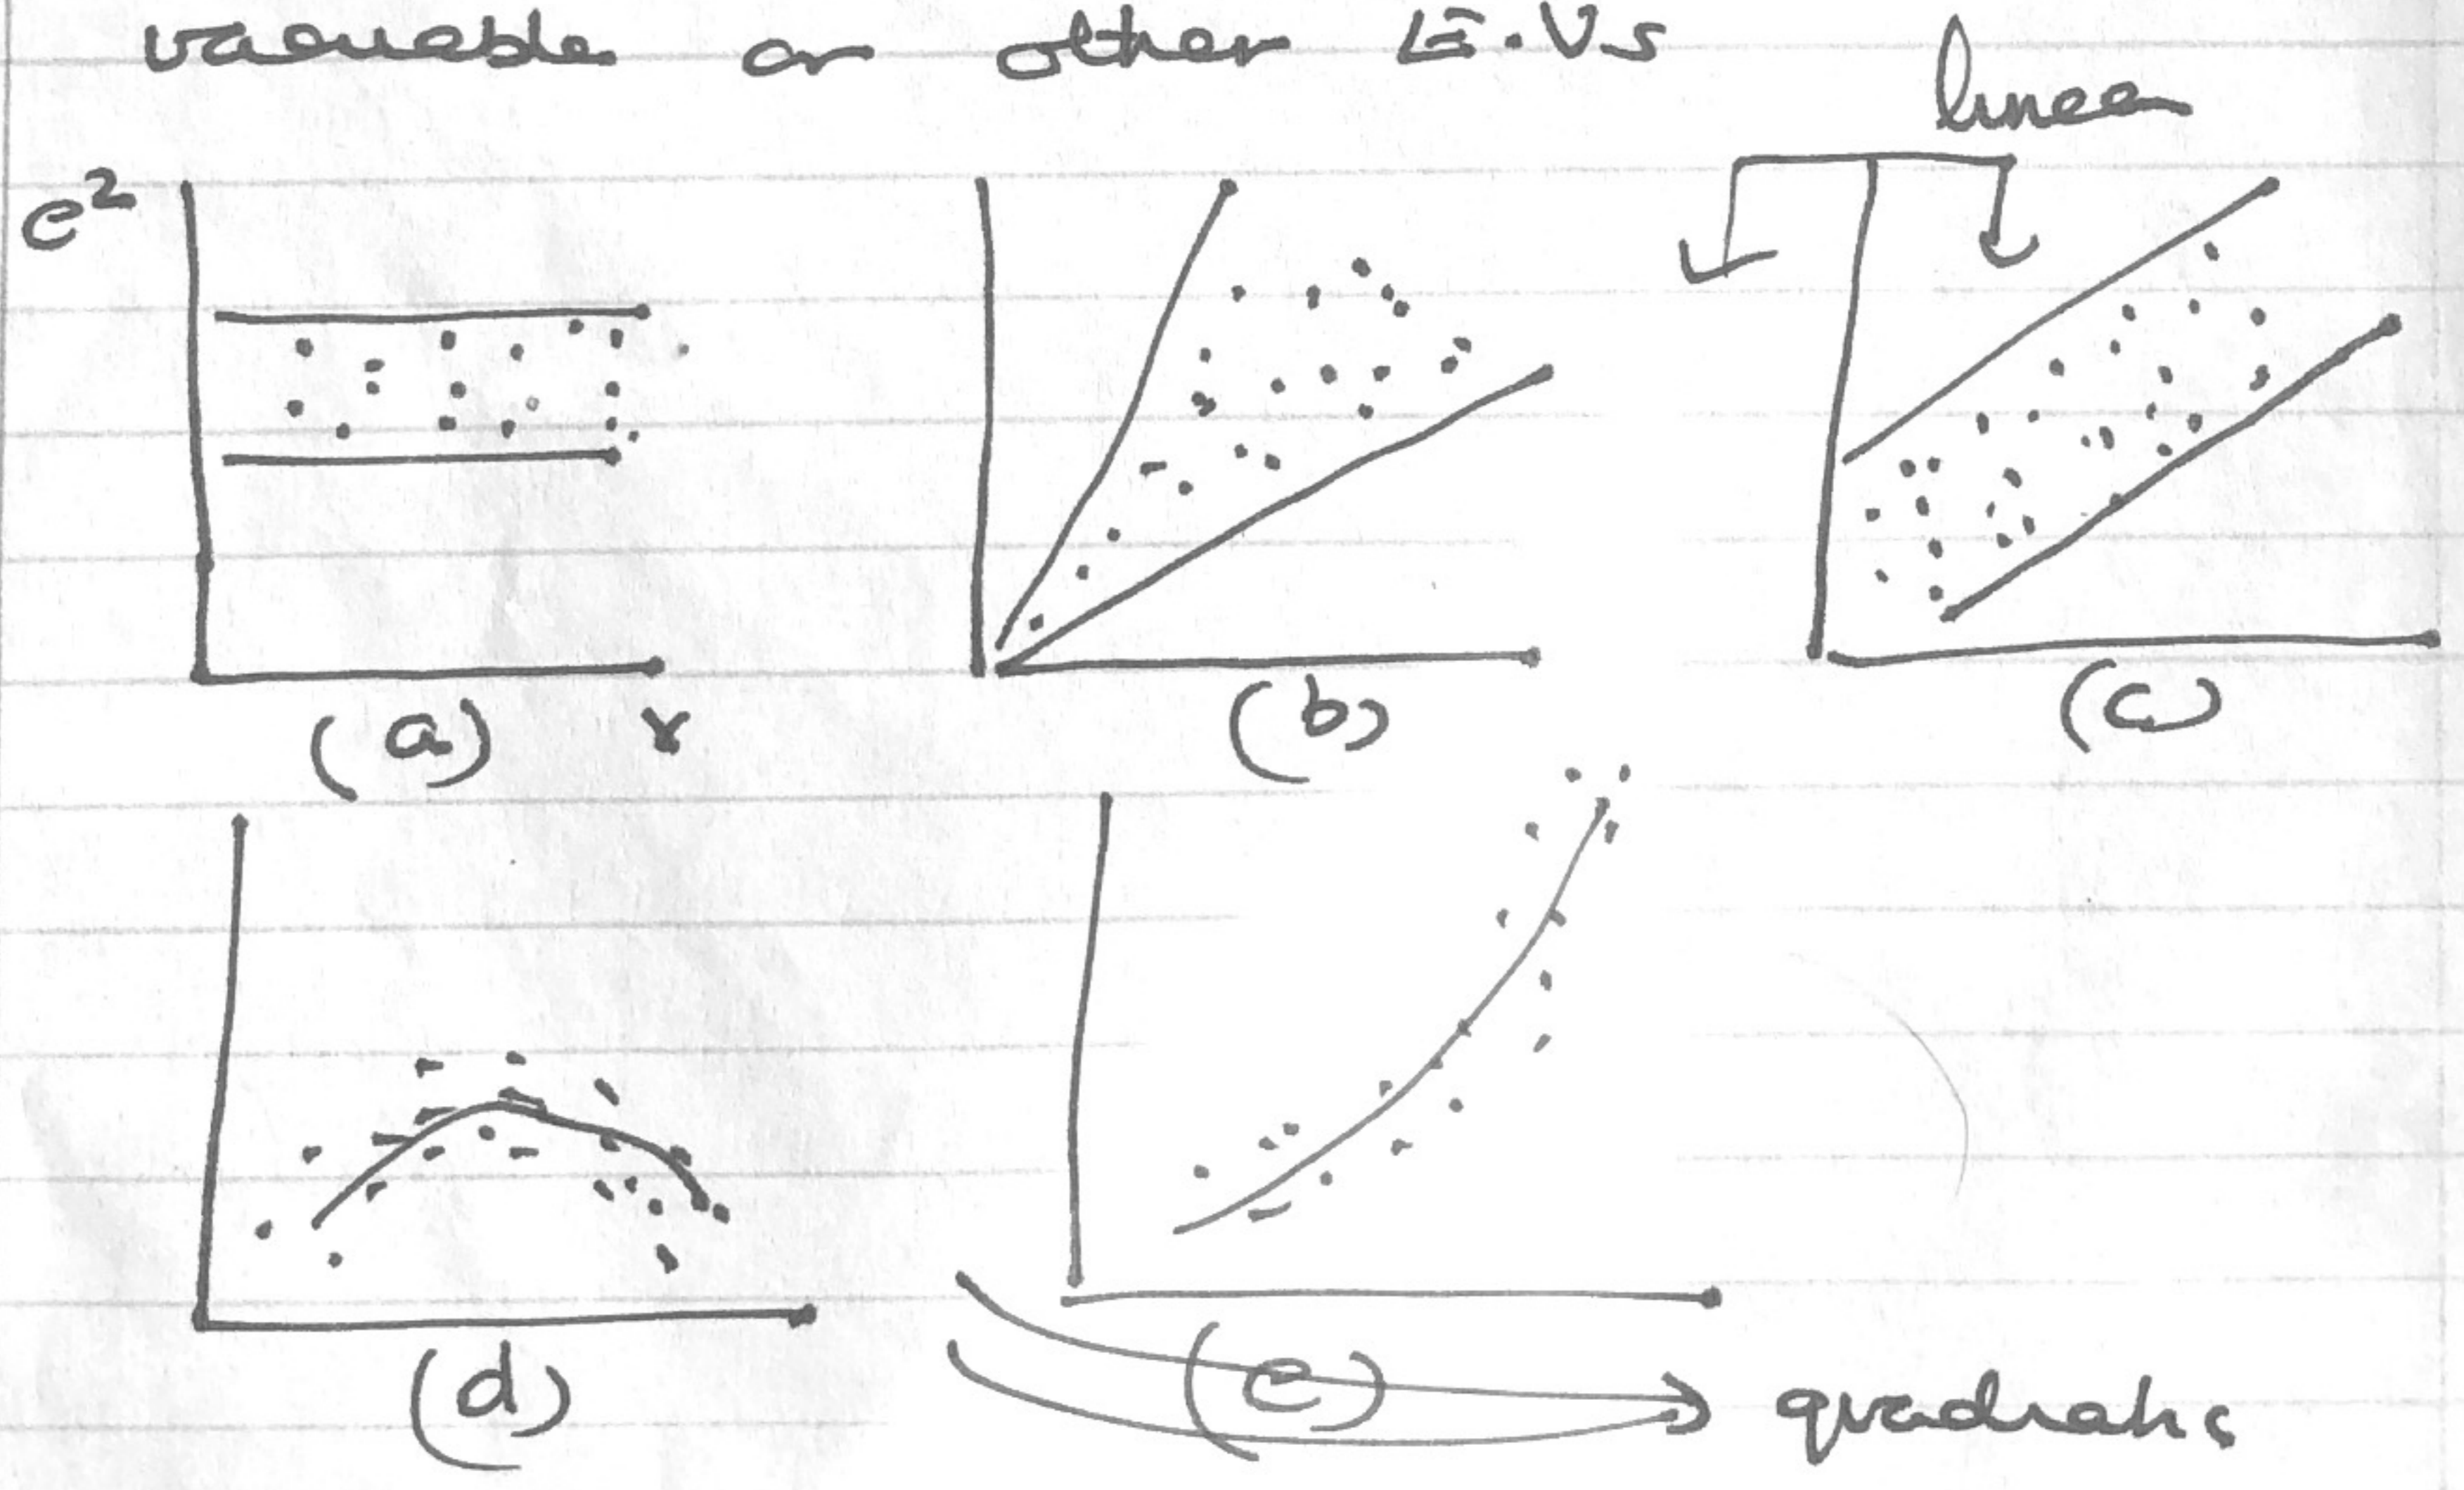 variable or other E.Vs
linear
e²
(a) Y (b) (c)
(d) (e)
quadratic